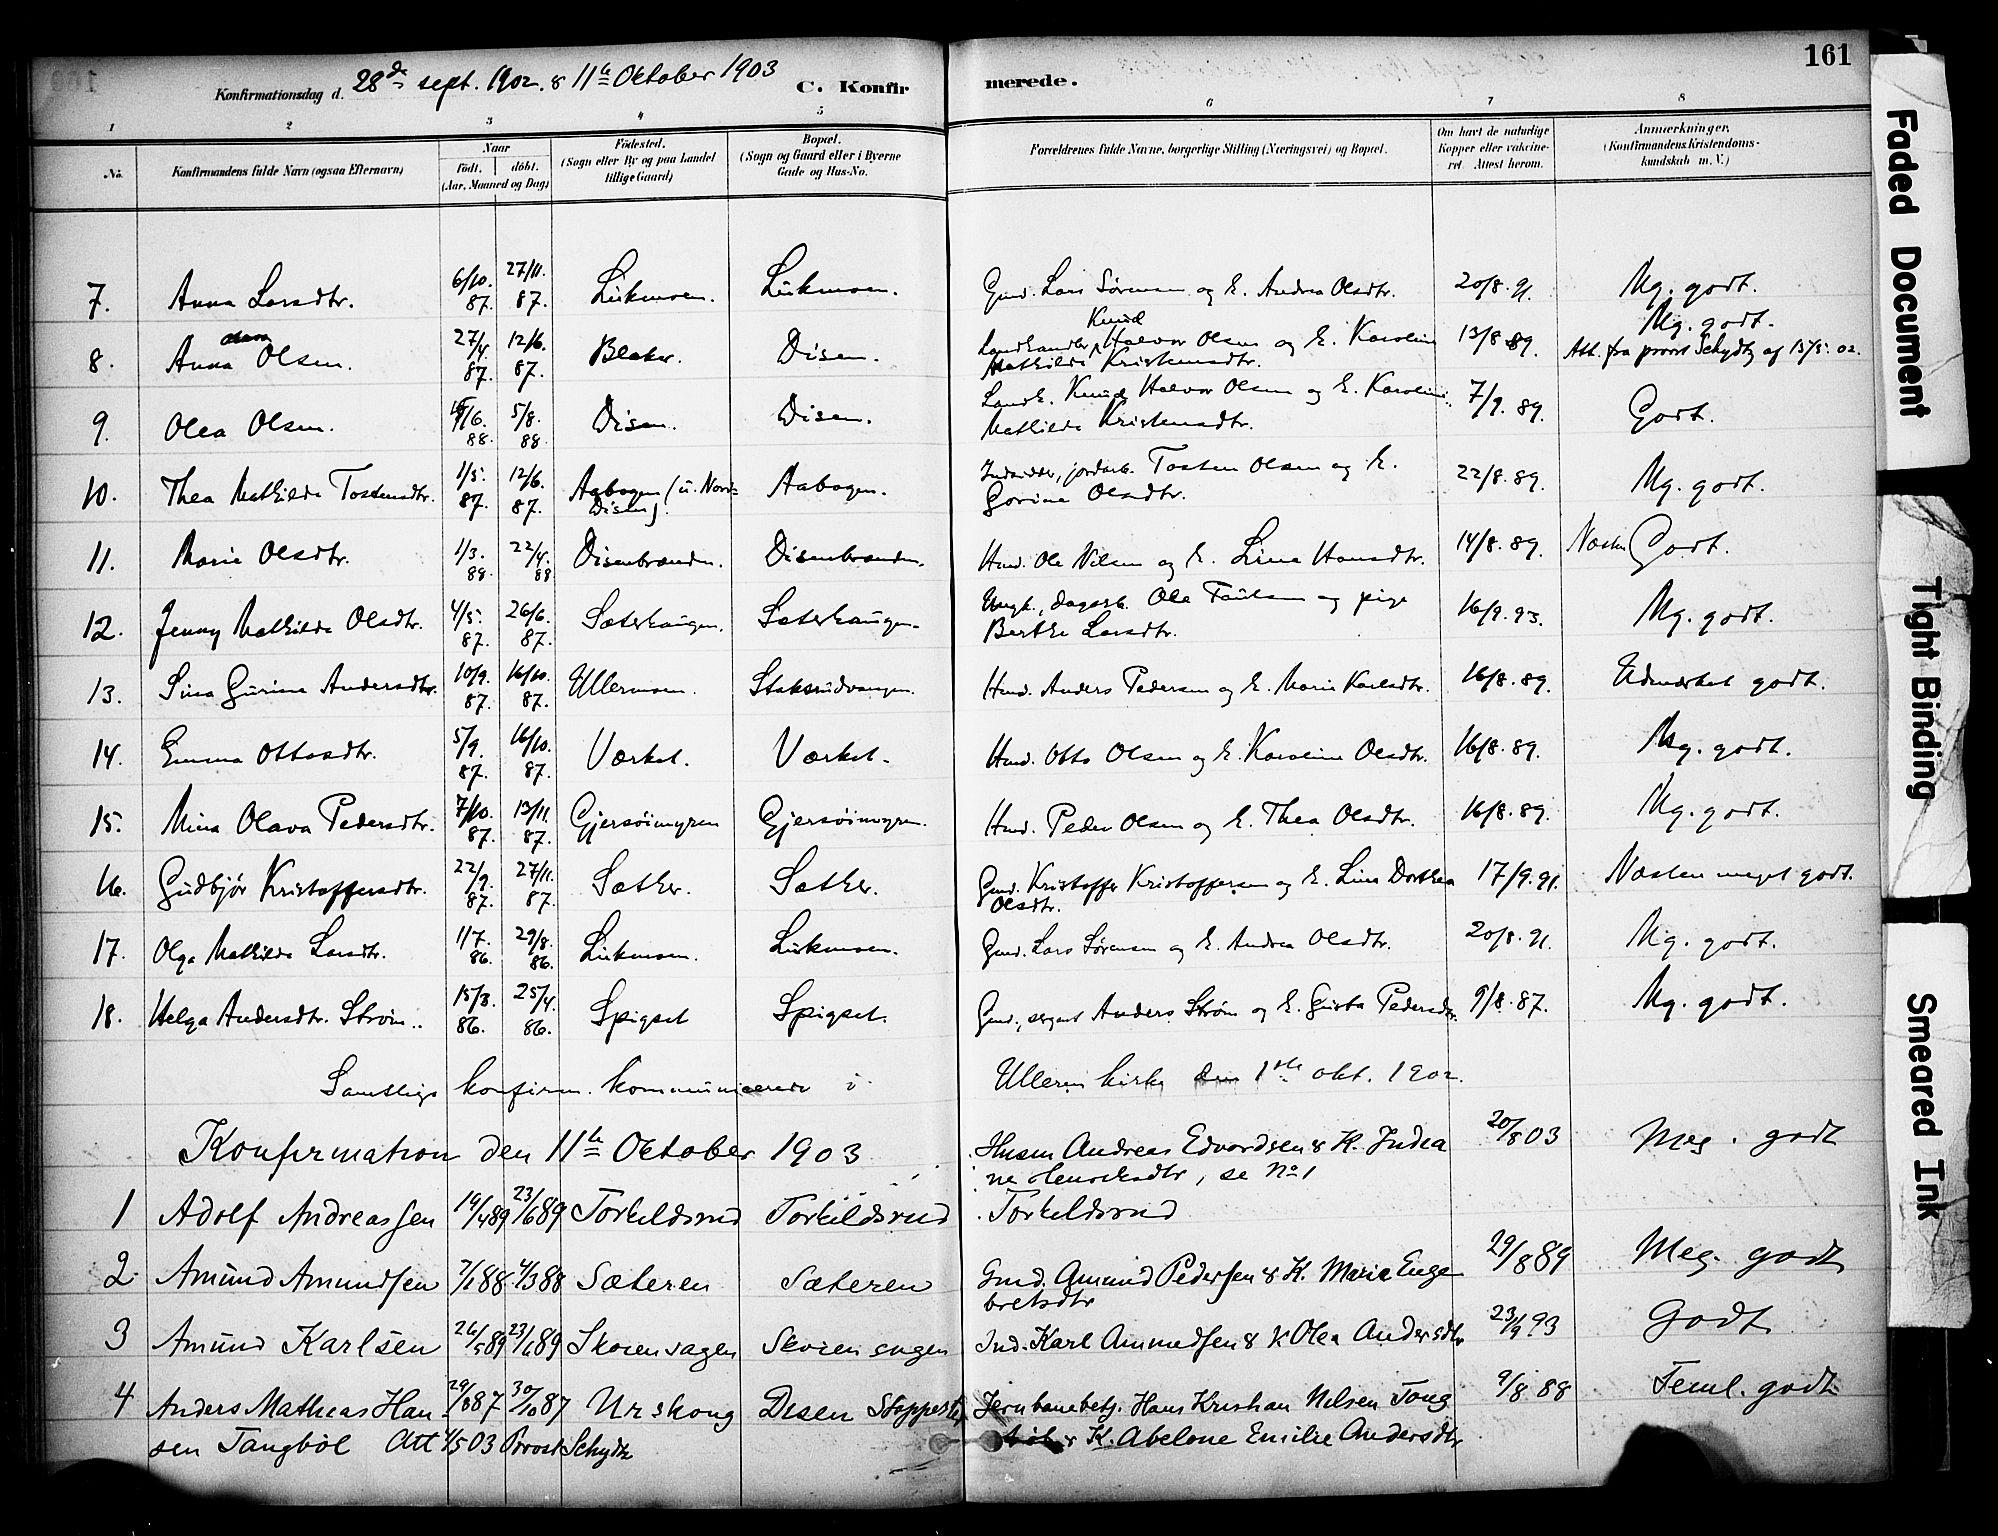 161
Konfirmationsdag d. 28de sept. 1902. & 11te Oktober 1903
C. Konfirmerede.
1 2 3 4 5 6 7 8
No.
Konfirmandens fulde Navn (ogsaa Efternavn)
Naar
født. døbt.
(Aar, Maaned og Dag)
Fødested.
(Sogn eller By og paa Landet
tillige Gaard)
Bopæl.
(Sogn og Gaard eller i Byerne
Gade og Hus-No.
Forældrenes fulde Navne, borgerlige Stilling (Næringsvei) og Bopæl.
Om havt de naturlige
Kopper eller vakcine-
ret. Attest herom.
Anmærkninger.
(Konfirmandens Kristendoms-
kundskab m. V.)
7. Anna Larsdtr. 6/10. 87. 27/11. 87. Likmoen. Likmoen. Gmd. Lars Sørensen og E. Andrea Olsdtr. 20/8. 91. Mg. godt.
8. Anna Olsen. 27/4. 87. 12/6. 87. Blaker. Disen. Landhandler Knud Halvor Olsen og E. Karoline
Mathilde Kristensdtr. 13/8 89. Mg. godt.
Att. fra provst Schydtz af 13/5. 02.
9. Olea Olsen. /6. 88. 5/8. 88 Disen. Disen. Landh. Knud Halvor Olsen og E. Karoline
Mathilde Kristensdtr. 7/9. 89. Godt.
10. Thea Mathilde Tostensdtr. 1/5. 87. 12/6. 87. Aabogen (u. Nord-
Disen). Aabogen. Inderster, jordarb. Tosten Olsen og E.
Gorine Olsdtr. 22/8. 89. Mg. godt.
11. Marie Olsdtr. 1/3. 88. 22/4. 88 Disenbraaden. Disenbraaden. Hmd. Ole Nilsen og E. Lina Hansdtr. 14/8. 89. Næsten Godt.
12. Jenny Mathilde Olsdtr. 4/5. 87. 26/6. 87. Sæterhaugen. Sæterhaugen. Ungk., dagarb. Ole Paulsen og pige
Berthe Larsdtr. 16/9. 93. Mg. godt.
13. Sina Gurine Andersdtr. 10/9. 87. 16/10. 87. Ullermoen. Staksrudvangen. Hmd. Anders Pedersen og E. Marie Karlsdtr. 16/8. 89. Udmærket godt.
14. Emma Ottosdtr. 5/9. 87. 16/10. 87. Værket. Værket. Hmd. Otto Olsen og E. Karoline Olsdtr. 16/8. 89. Mg. godt.
15. Mina Olava Pedersdtr. 7/10. 87. 13/11. 87. Gjersøimyren Gjersøimyren. Hmd. Peder Olsen og E. Thea Olsdtr. 16/8. 89. Mg. godt.
16. Gudbjør Kristoffersdtr. 22/9. 87. 27/11. 87. Sæther. Sæther. Gmd. Kristoffer Kristoffersen og E. Lina Dorthea
Olsdtr. 17/9. 91. Næsten meget godt.
17. Olga Mathilde Larsdtr. 1/7. 86. 29/8. 86. Likmoen. Likmoen. Gmd. Lars Sørensen og E. Andrea Olsdtr. 20/8. 91. Mg. godt.
18. Helga Andersdtr. Strøm. 15/3. 86. 25/4. 86. Spigset Spigset. Gmd., sergeant Anders Strøm og E. Gusta Pedersdtr. 9/8. 87. Mg. godt.
Samtlige konfirm. kommunicerede i Ulleren kirke den 1ste okt. 1902.
Konfirmation den 11te Oktober 1903
1 Adolf Andreassen 14/4 89 23/6 89 Torkildsrud Torkildsrud Husm Andreas Edvardsen & K. Indea
ne Henriksdtr, se No 1
Torkildsrud 20/8 03 Meg. godt
2 Amund Amundsen 7/1 88 4/3 88 Sæteren Sæteren Gmd. Amund Pedersen & K. Marie Enge
bretsdtr 29/8 89 Meg. godt
3 Amund Karlsen 26/5 89 23/6 89 Skorensagen Skorensagen Ind. Karl Ammedsen & K Olea Andersdtr 23/9 93 Godt
4 Anders Mathias Han-
sen Tangbøl Att 4/5 03 Provst Schydtz 29/8 87 30/10 87 Urskoug Disen Stoppested Jernbanebetj. Hans Kristian Nilsen Tang
bøl & K. Abelone Emilie Andersdtr 9/8 88 Teml. godt
Faded Document
Tight Binding
Smeared Ink